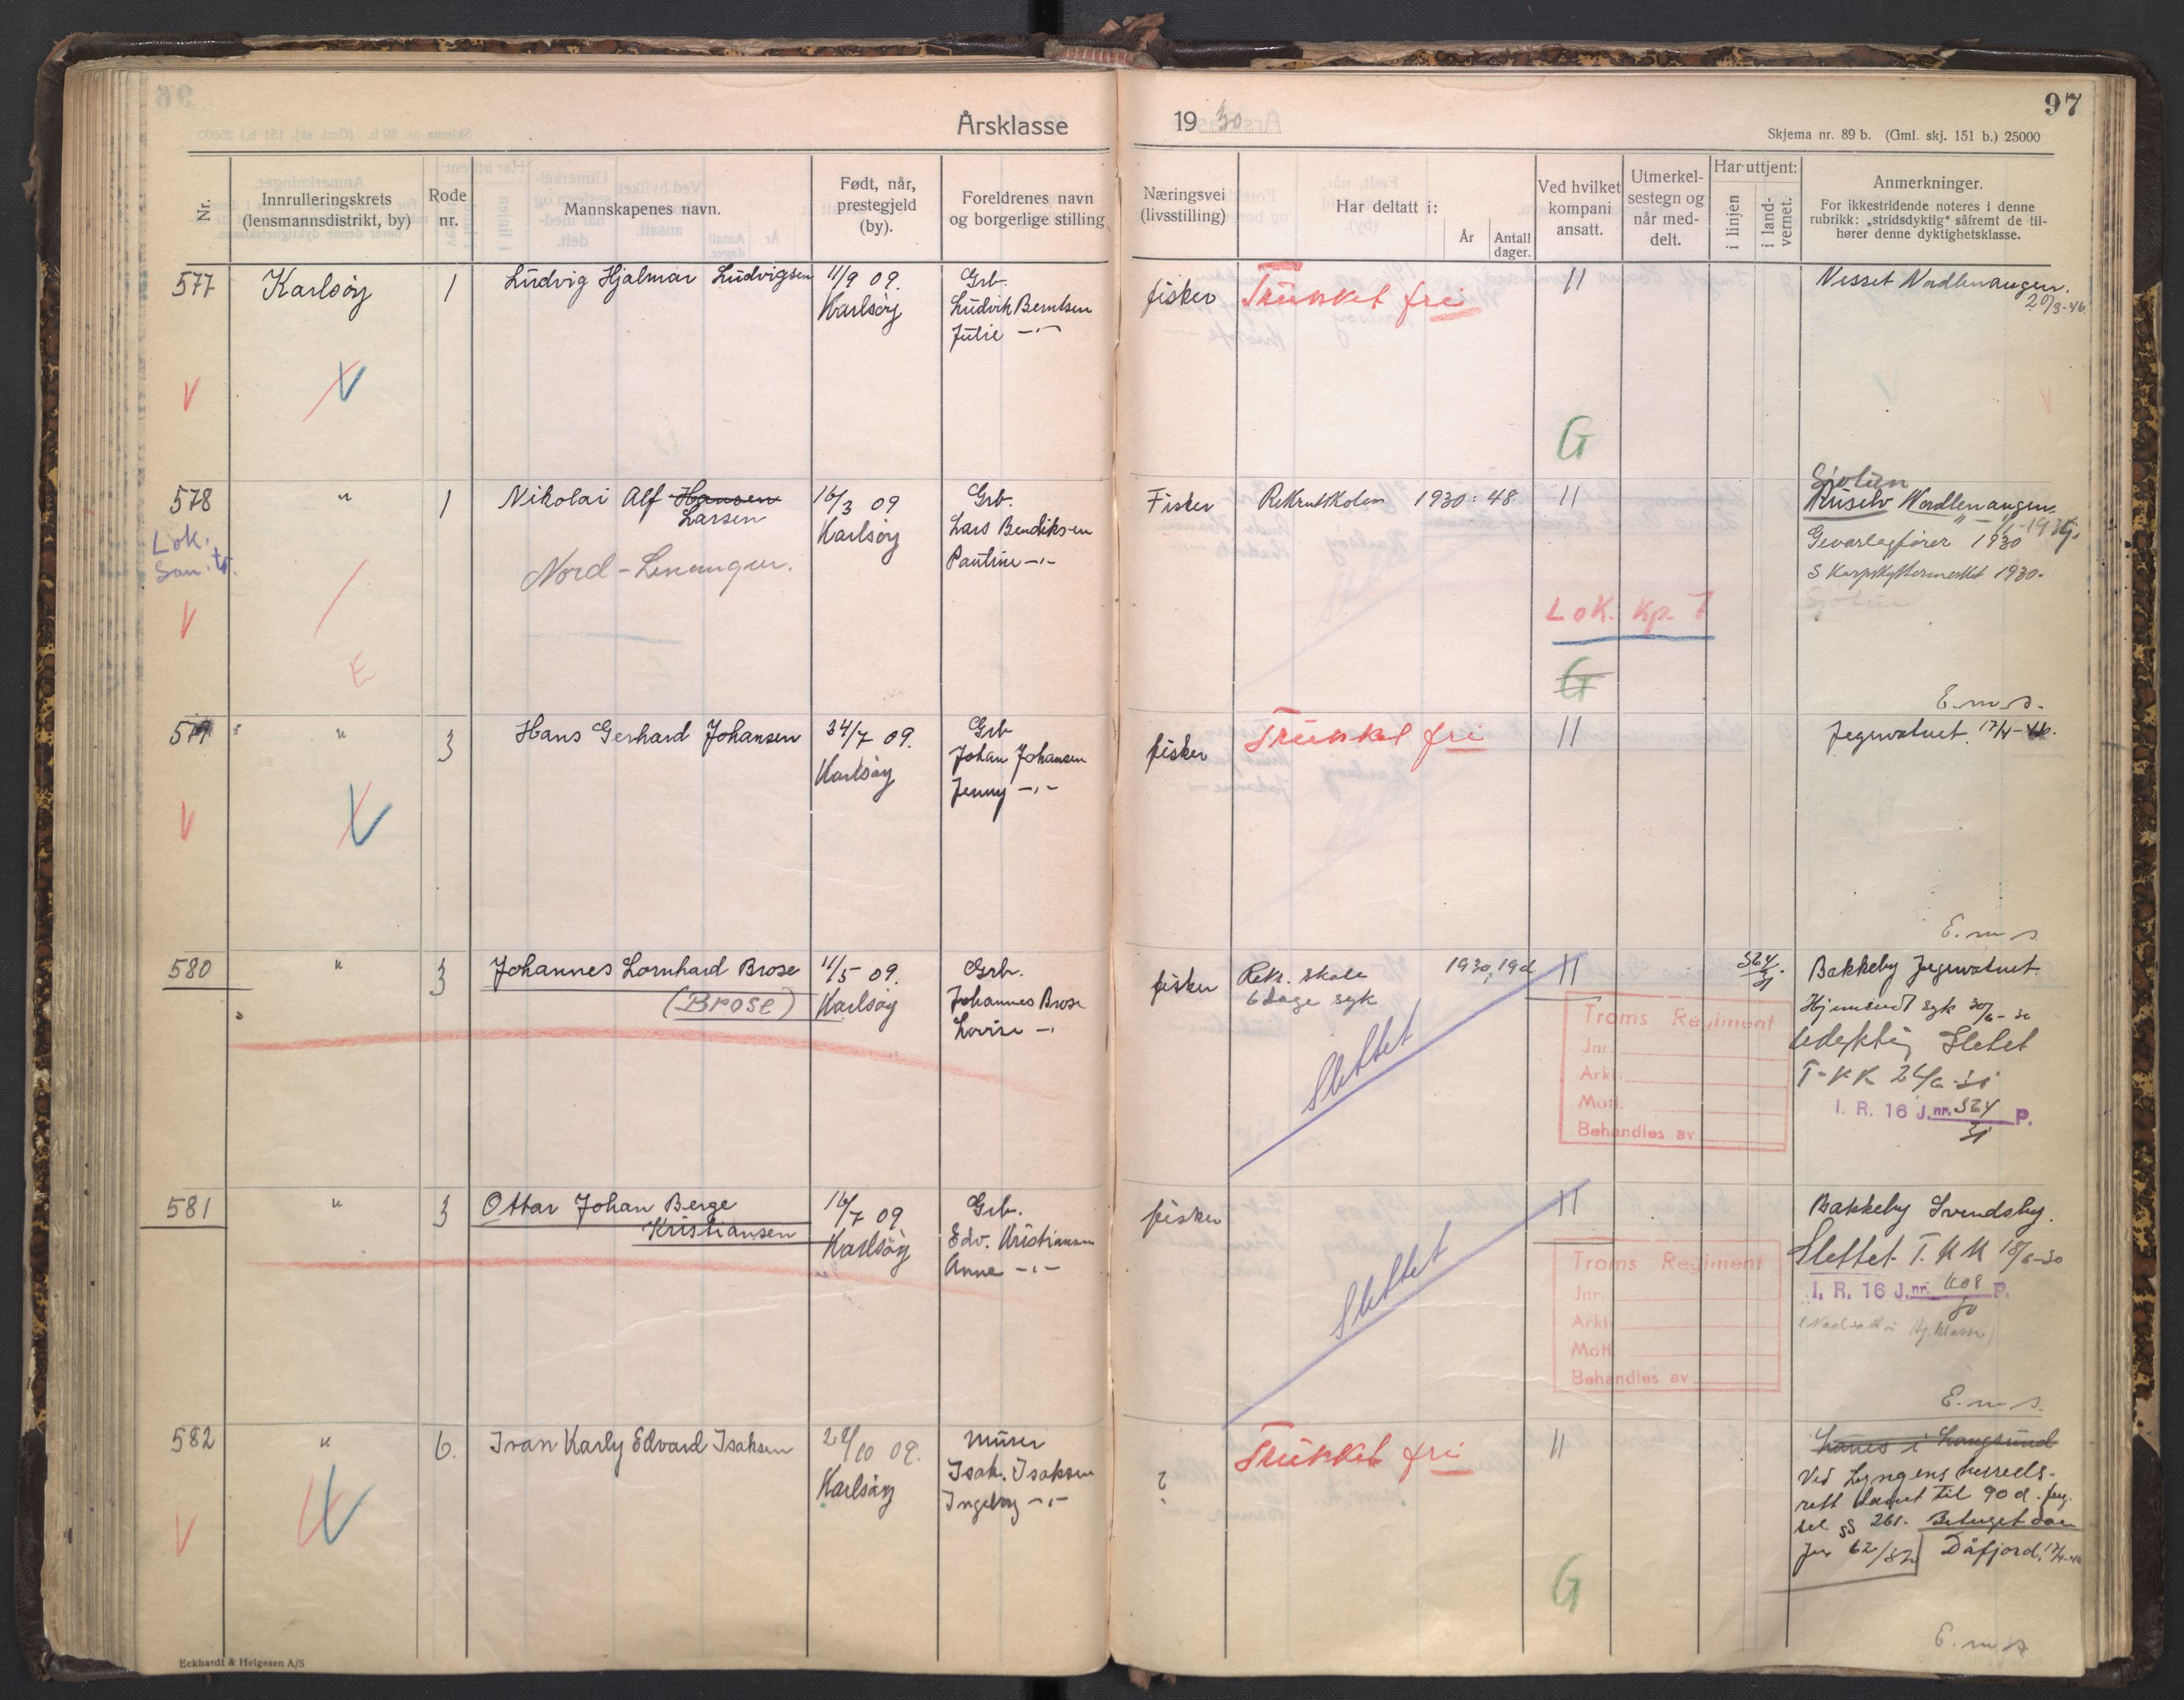 97
Årsklasse 1930
Skjema nr. 89 b. (Gml. skj. 151 b.) 25000
Nr.
Innrulleringskrets
(lensmannsdistrikt, by)
Rode
nr.
Mannskapenes navn.
Født, når,
prestegjeld
(by).
Foreldrenes navn
og borgerlige stilling
Næringsvei
(livsstilling)
Har deltatt i:
År
Antall
dager.
Ved hvilket
kompani
ansatt.
Utmerkel-
sestegn og
når med-
delt.
Har uttjent:
i linjen
i land-
vernet.
Anmerkninger.
For ikkestridende noteres i denne
rubrikk: „stridsdyktig“ såfremt de til-
hører denne dyktighetsklasse.
577 Karlsøy 1 Ludvig Hjalmar Ludvigsen 11/9 09. Grb.
Karlsøy Ludvik Berntsen
Julie —"—
fisker Trunket fri 11 Nesset Nordlenangen.
20/3-46
V
G
578 " 1 Nikolai Alf Hansen 16/3 09 Grb.
Larsen Karlsøy Lars Bendiksen
Pauline —"—
Lok.
San. tr.
Nord-Lenangen.
V
E
Fisker Rekrutskolen 1930: 48 11
Sjøtun
Nordlenangen
Geværlagfører 1930
S Karpskyttermerket 1930.
Lok. Kp. 7
G
E.m.s.
579 " 3 Hans Gerhard Johansen 24/7 09. Grb
Karlsøy Johan Johansen
Jenny —"—
fisker Trunket fri 11 Jegervatnet. 17/4-46.
V
E.m.s.
580 " 3 Johannes Lornhard Brose 11/5 09. Grb.
(Brose) Karlsøy Johannes Brose
Lovise —"
fisker Rek. skole 1930, 19d 11 524/31 Bakkeby Jegervatnet.
6 dage syk
Hjemsendt syk 30/6-30
Udyktig Slettet
T.KK 24/6-31
I. R. 16 J.nr. 524 P.
31
Slettet
Troms Regiment
Jnr.
Arki
Mott.
Behandles av
581 " 3 Ottar Johan Berge 16/7 09 Grb.
Kristiansen Karlsøy Edv. Kristiansen
Anne —"—
fisker 11 Bakkeby Svendsby.
Slettet T.KK 18/6-30
I. R. 16 J.nr. 608 P.
30
Slettet
Troms Regiment
Jnr.
Arki
Mott
Behandles av
E.m.s.
582 " 6. Ivan Karly Edvard Isaksen 28/10 09. Murer
Karlsøy Isak. Isaksen
Ingeborg —"—
? Trunket fri 11 Hanes i Langsund
Ved Lyngens herreds-
rett dømt til 90 d. feng-
sel §§ 261. Betinget dom
Jnr 62/32 Dåfjord. 17/4-46
V
G
E.m.s
Eckhardt & Helgesen A/S